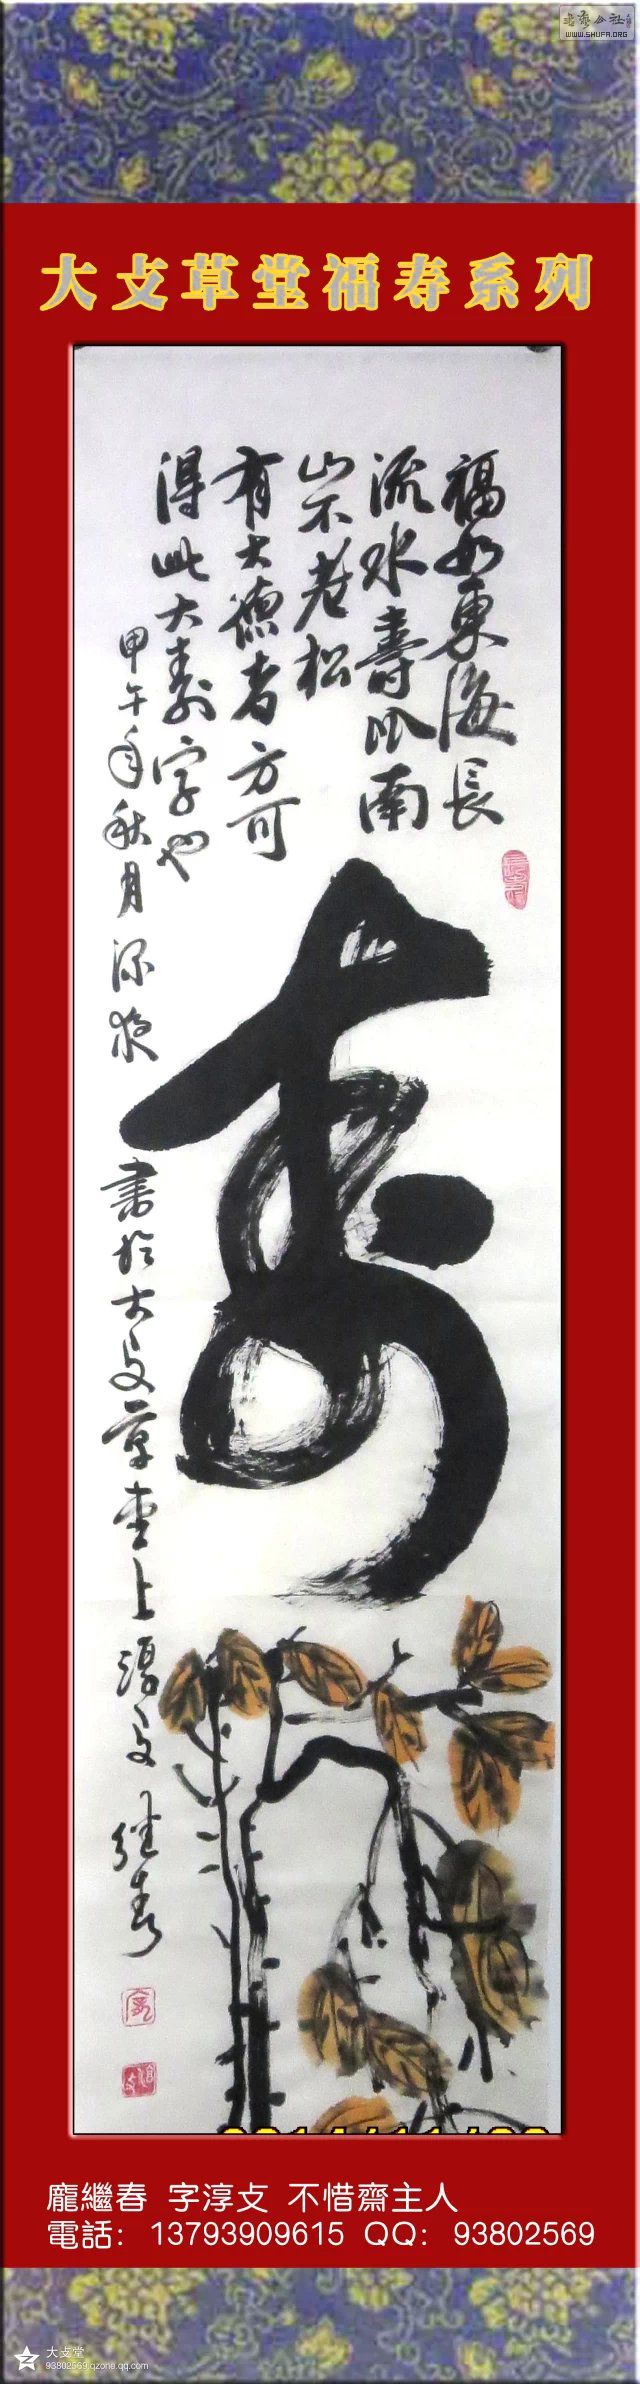 书艺公社
WWW.SHUFA.ORG
大攴草堂福寿系列
福如東海長
流水壽比南
山不老松
有大德者方可
得此大寿字也
甲午年秋月深夜 書於大攴草堂上 淳攴 继春
寿
龐繼春 字淳攴 不惜齋主人
電話：13793909615 QQ：93802569
大攴堂
93802569.qzone.qq.com